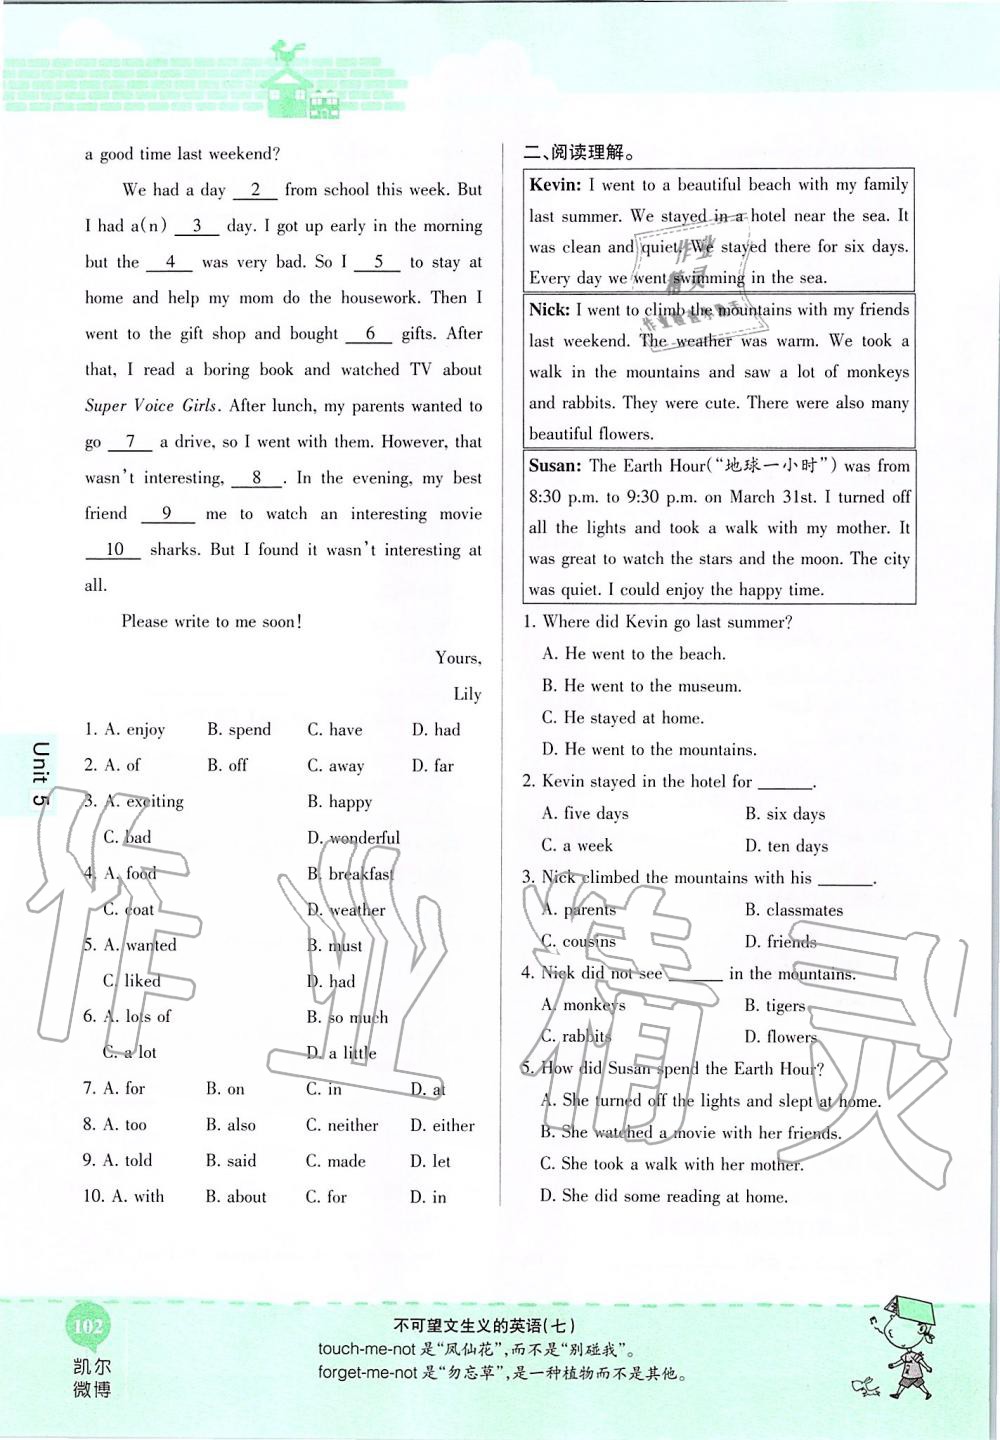 a good time last weekend?
We had a day 2 from school this week. But
I had a(n) 3 day. I got up early in the morning
but the 4 was very bad. So I 5 to stay at
home and help my mom do the housework. Then I
went to the gift shop and bought 6 gifts. After
that, I read a boring book and watched TV about
Super Voice Girls. After lunch, my parents wanted to
go 7 a drive, so I went with them. However, that
wasn't interesting, 8 . In the evening, my best
friend 9 me to watch an interesting movie
10 sharks. But I found it wasn't interesting at
all.
Please write to me soon!
Yours,
Lily
1. A. enjoy B. spend C. have D. had
2. A. of B. off C. away D. far
3. A. exciting B. happy
C. bad D. wonderful
4. A. food B. breakfast
C. coat D. weather
5. A. wanted B. must
C. liked D. had
6. A. lots of B. so much
C. a lot D. a little
7. A. for B. on C. in D. at
8. A. too B. also C. neither D. either
9. A. told B. said C. made D. let
10. A. with B. about C. for D. in
二、阅读理解。
Kevin: I went to a beautiful beach with my family
last summer. We stayed in a hotel near the sea. It
was clean and quiet. We stayed there for six days.
Every day we went swimming in the sea.
Nick: I went to climb the mountains with my friends
last weekend. The weather was warm. We took a
walk in the mountains and saw a lot of monkeys
and rabbits. They were cute. There were also many
beautiful flowers.
Susan: The Earth Hour(“地球一小时”) was from
8:30 p.m. to 9:30 p.m. on March 31st. I turned off
all the lights and took a walk with my mother. It
was great to watch the stars and the moon. The city
was quiet. I could enjoy the happy time.
1. Where did Kevin go last summer?
A. He went to the beach.
B. He went to the museum.
C. He stayed at home.
D. He went to the mountains.
2. Kevin stayed in the hotel for ______.
A. five days B. six days
C. a week D. ten days
3. Nick climbed the mountains with his ______.
A. parents B. classmates
C. cousins D. friends
4. Nick did not see ______ in the mountains.
A. monkeys B. tigers
C. rabbits D. flowers
5. How did Susan spend the Earth Hour?
A. She turned off the lights and slept at home.
B. She watched a movie with her friends.
C. She took a walk with her mother.
D. She did some reading at home.
Unit 5
作业精灵
作业
精灵
102
凯尔
微博
不可望文生义的英语(七)
touch-me-not 是“凤仙花”,而不是“别碰我”。
forget-me-not 是“勿忘草”,是一种植物而不是其他。